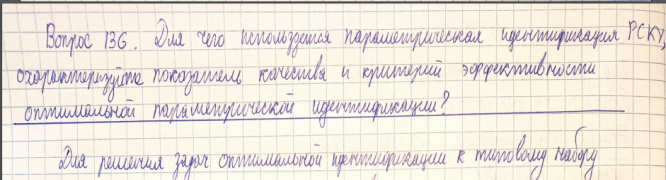 Вопрос 136. Для чего используется параметрическая идентификация РСКУ,
охарактеризуйте показатель качества и критерий эффективности
оптимальной параметрической идентификации?
Для решения задач оптимальной идентификации к типовому набору